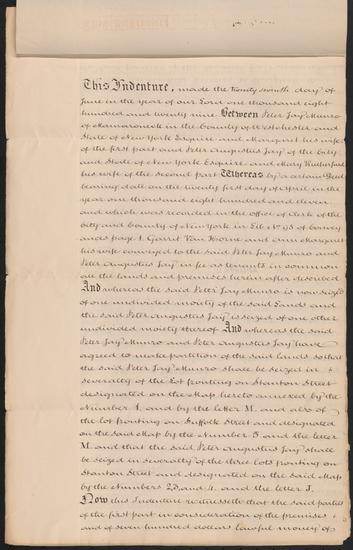 This Indenture, made the twenty seventh day of
June in the year of our Lord one thousand eight
hundred and twenty nine. Between Peter Jay Munro
of Mamaroneck in the County of Westchester and
State of New York Esquire and Margaret his wife
of the first part and Peter Augustus Jay of the City
and State of New York Esquire and Mary Rutherfurd
his wife of the second part Whereas by a certain Deed
bearing date on the twenty first day of April in the
year one thousand eight hundred and eleven
and which was recorded in the office of Clerk of the
City and County of New York in Lib No 93 of Convey
ances page 1 Garrit Van Horne and Ann Margaret
his wife conveyed to the said Peter Jay Munro and
Peter Augustus Jay in fee as tenants in common
all the lands and premises herein after described
And whereas the said Peter Jay Munro is now seized
of one undivided moiety of the said Lands and
the said Peter Augustus Jay is seized of one other
undivided moiety thereof And whereas the said
Peter Jay Munro and Peter Augustus Jay have
agreed to make partition of the said lands so that
the said Peter Jay Munro shall be seized in
severalty of the Lot fronting on Stanton Street
designated on the Map hereto annexed by the
Number 1, and by the letter M. and also of
the lot fronting on Suffolk Street and designated
on the said Map by the Number 5 and the letter
M. and that the said Peter Augustus Jay shall
be seized in severalty of the three lots fronting on
Stanton Street and designated on the said Map
by the Numbers 2, 3 and 4. and the letter J.
Now this Indenture witnesseth that the said parties
of the first part in consideration of the premises
and of seven hundred dollars lawful money of